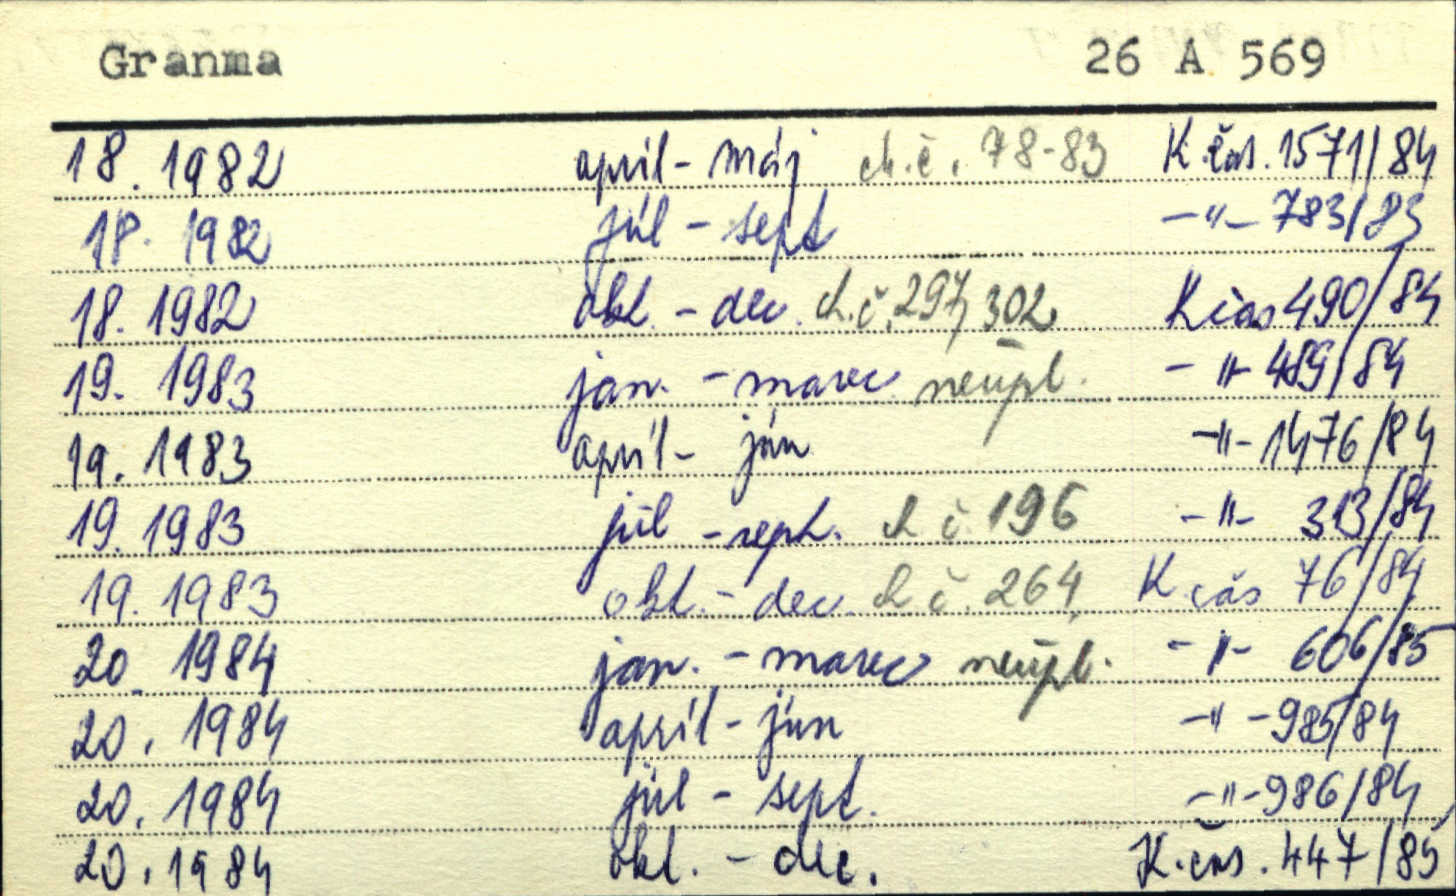 Granma 26 A 569
18. 1982 apríl - máj ch.č. 78-83 K.čas. 1571/84
18. 1982 júl - sept -"- 783/83
18. 1982 okt. - dec. ch.č. 297, 302 K čas 490/84
19. 1983 jan. - marec neúpl. -"- 489/84
19. 1983 apríl - jún -"- 1476/84
19. 1983 júl - sept. ch č 196 -"- 313/84
19. 1983 okt. - dec. ch č. 264 K čas 76/84
20. 1984 jan. - marec neúpl. -"- 606/85
20. 1984 apríl - jún -"- 985/84
20. 1984 júl - sept. -"- 986/84
20. 1984 okt. - dec. K.čas. 447/85